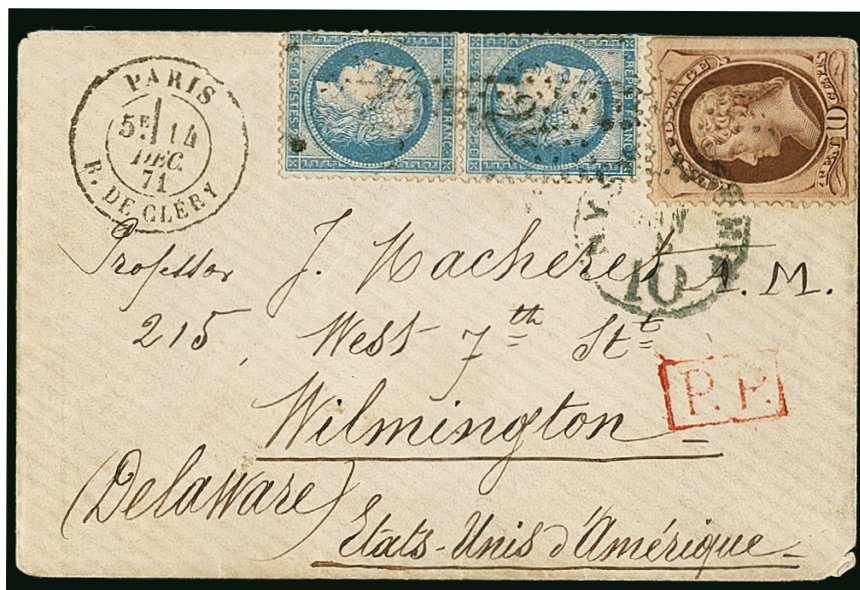 PARIS
5E 14
DEC.
71
R. DE CLÉRY
10
Professor J. Macheret A.M.
215, West 7th St
Wilmington
P.P.
(Delaware)
Etats-Unis d'Amérique